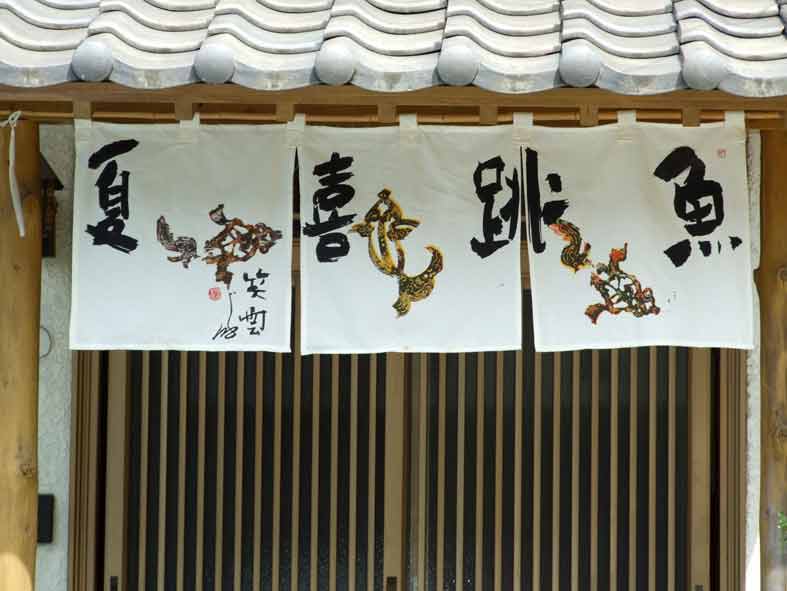 魚跳喜夏
笑雲